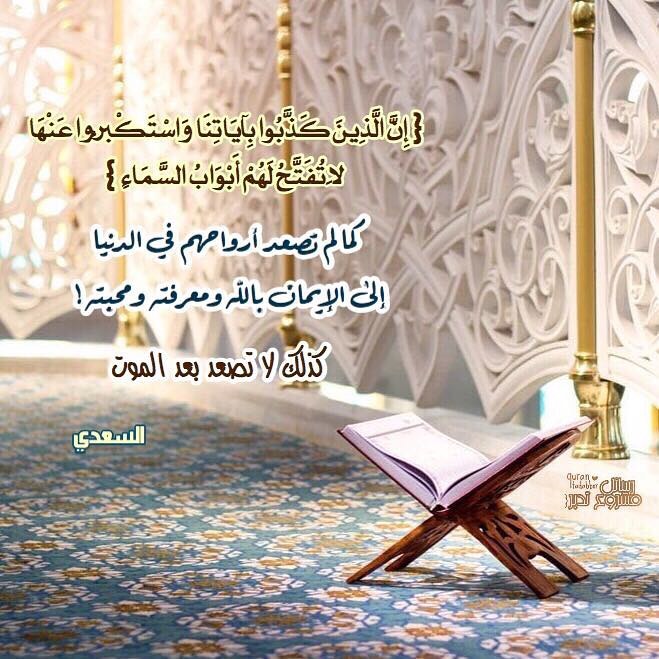 { إِنَّ الَّذِينَ كَذَّبُوا بِآيَاتِنَا وَاسْتَكْبَروا عَنْهَا
لا تُفَتَّحُ لَهُمْ أَبْوَابُ السَّمَاءِ }
كما لم تصعد أرواحهم في الدنيا
إلى الإيمان بالله ومعرفته ومحبته !
كذلك لا تصعد بعد الموت
السعدي
Quran
Tadabbor
رسائل
مشروع تدبر